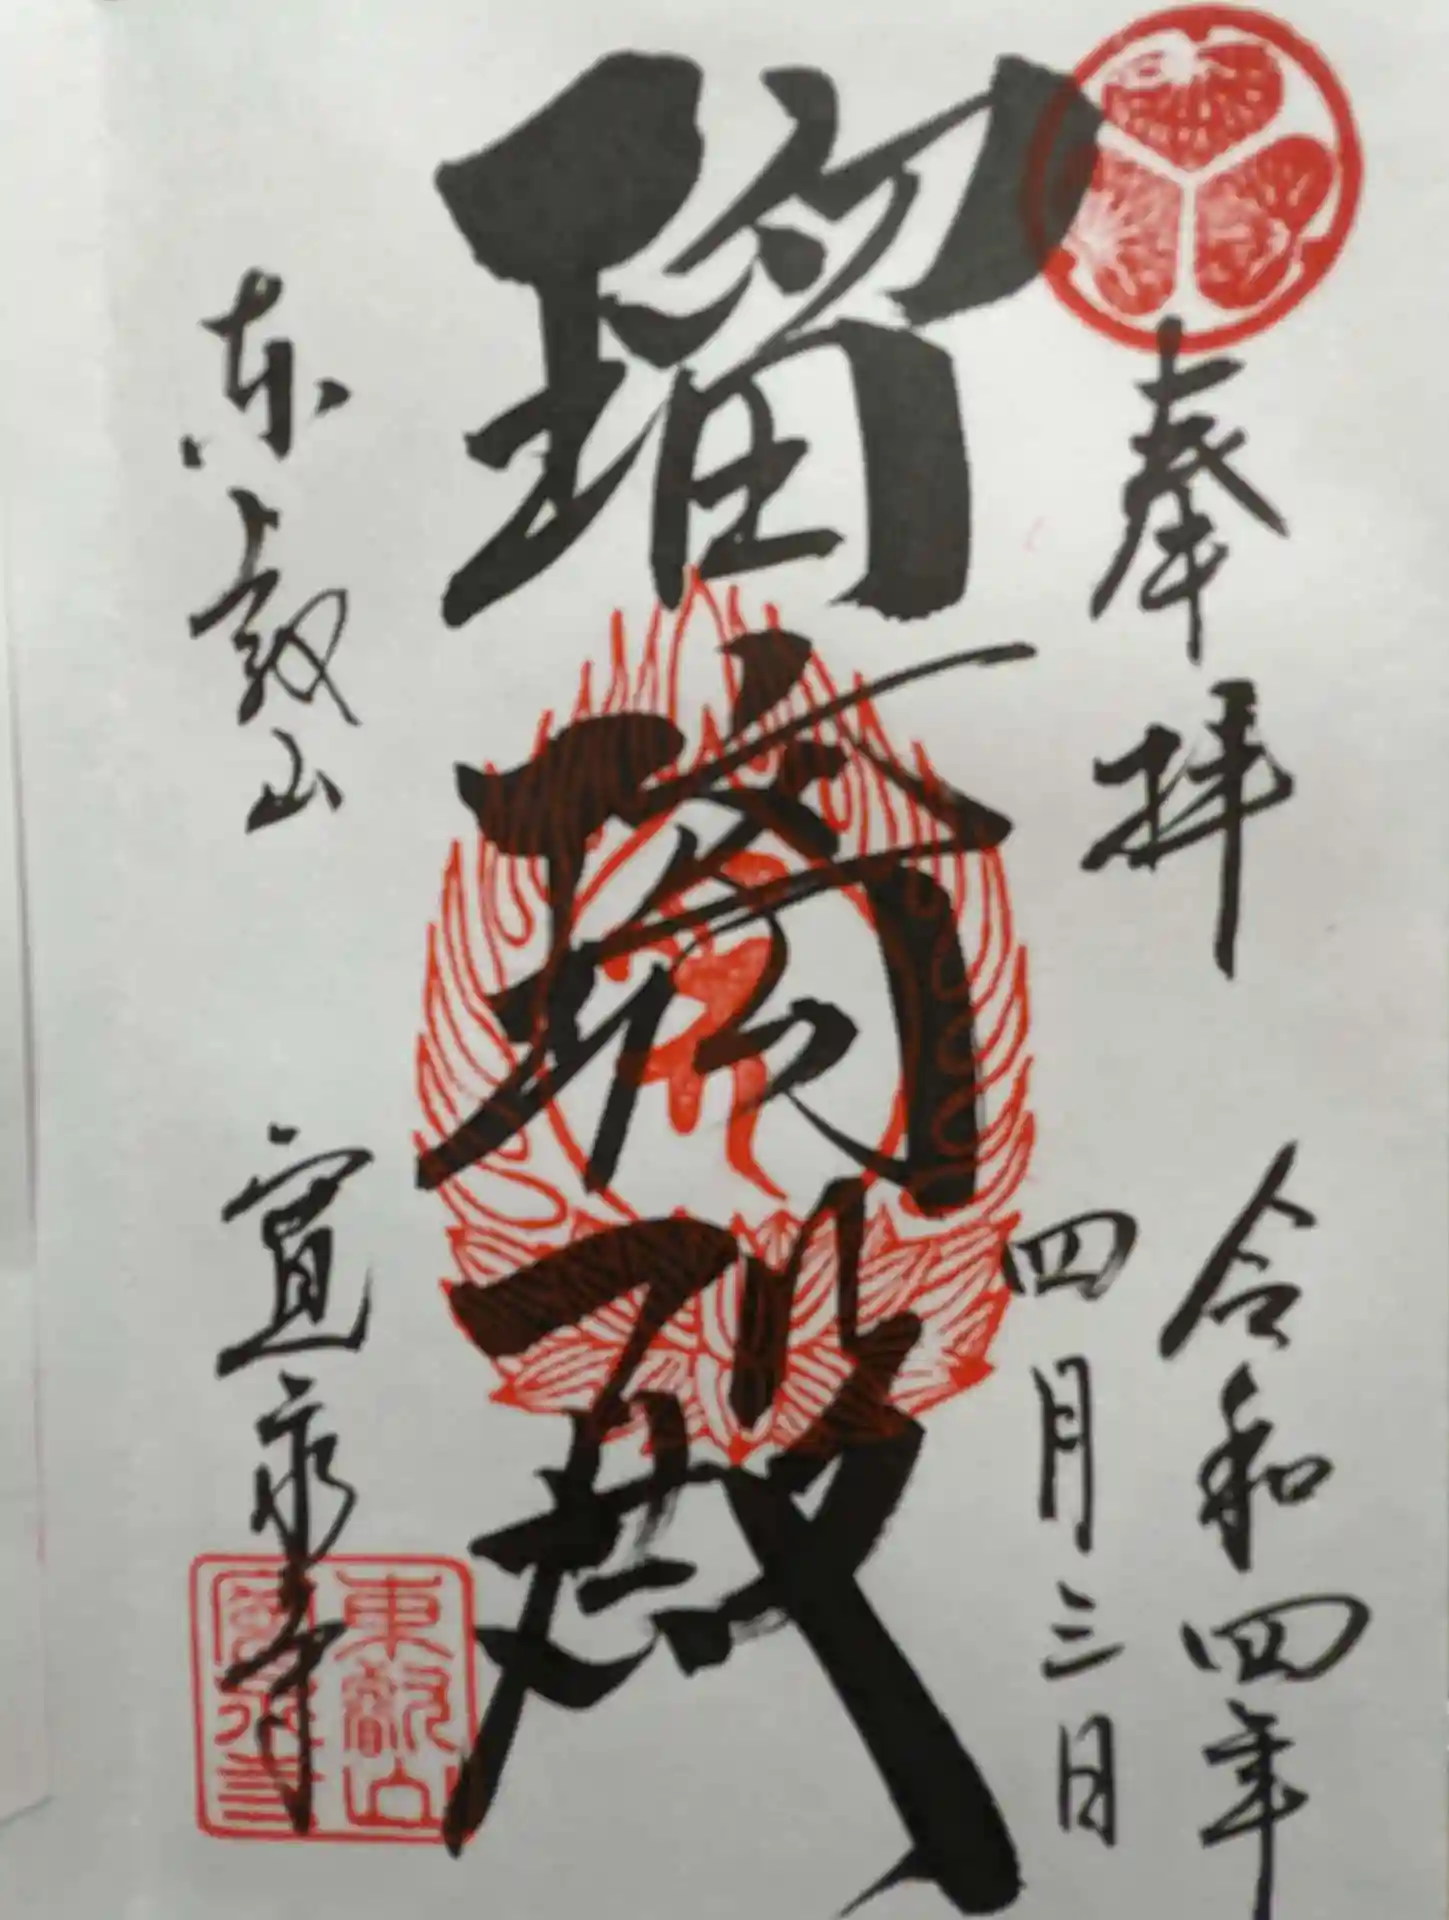 奉拝
令和四年
四月三日
瑠璃殿
东叡山
寛永寺
東叡山
寛永寺